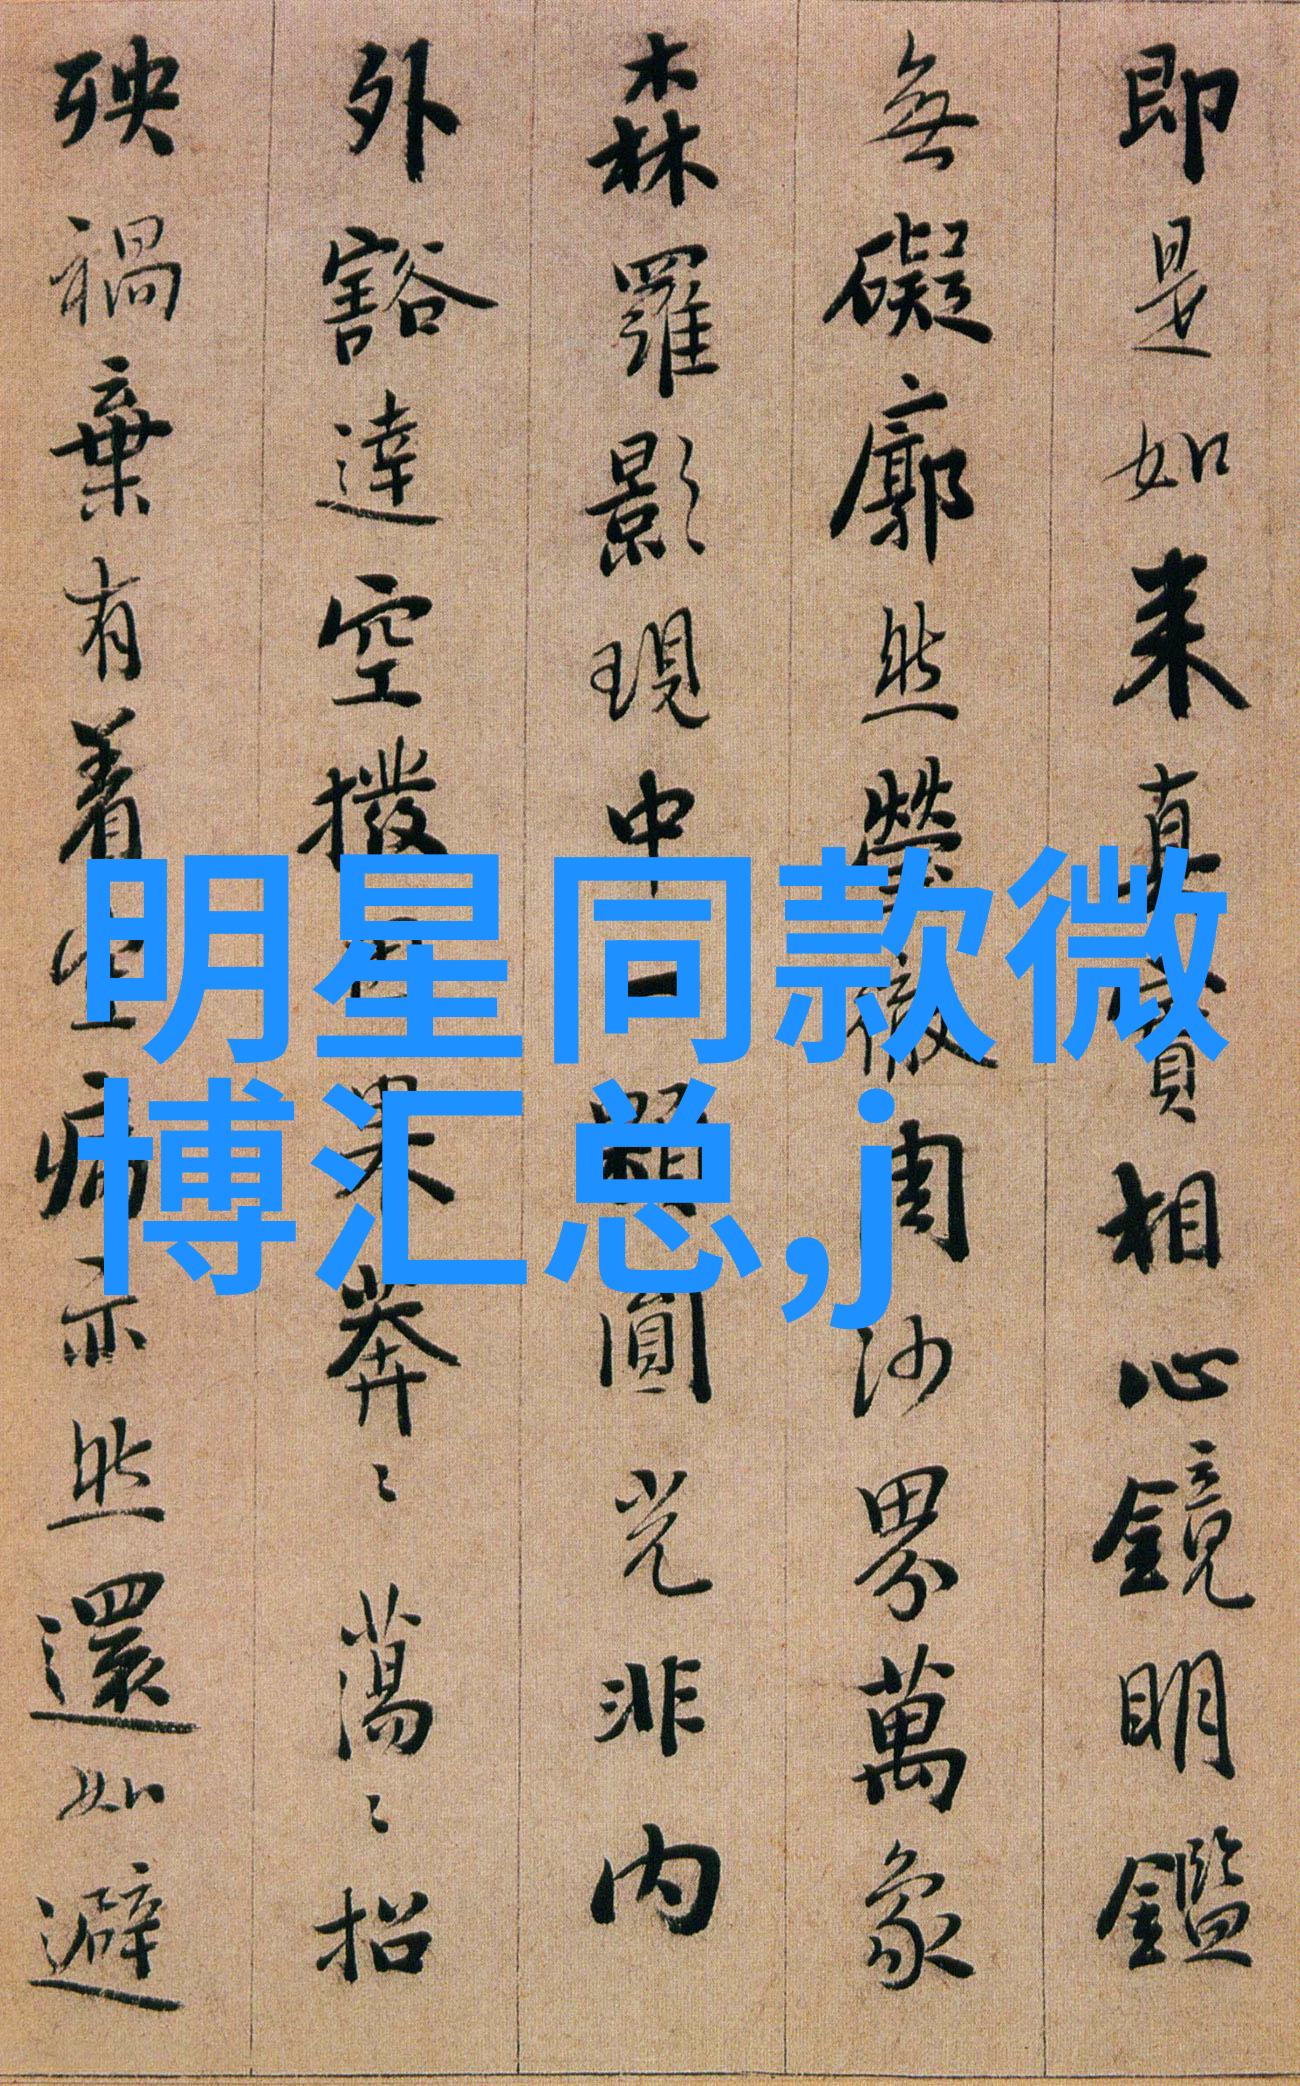 即是如来真實相心鏡明鑑
無礙廓然瑩徹周沙界萬象
森羅影現中一顆圓光非内
外豁達空撥因果莽〻蕩〻招
殃禍棄有著空病亦然還如避
明星同款微
博汇总,j